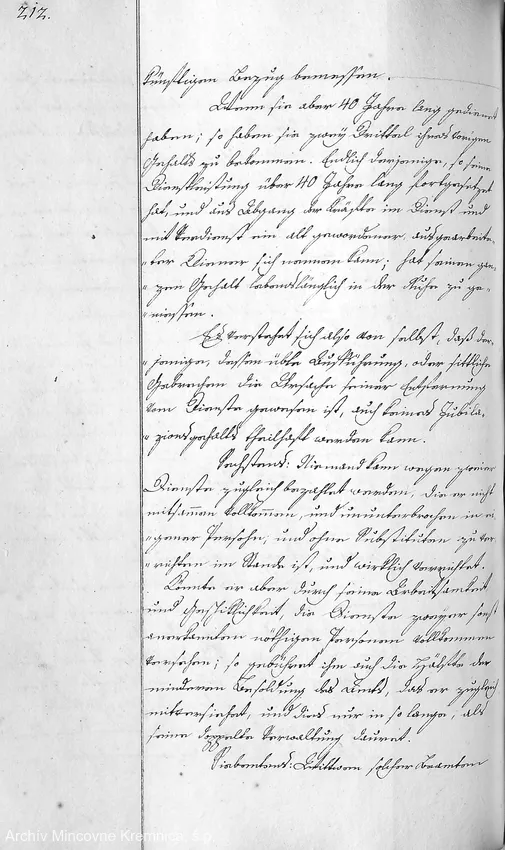 212.
künftigen Bezug bemessen.
Wenn sie aber 40 Jahre lang gedient
haben; so haben sie zwey Drittel ihres vorigen
Gehalts zu bekommen. Endlich derjenige, so seine
Dienstleistung über 40 Jahre lang fortgesetzet
hat, und aus Abgang der Kräfte im Dienst und
mit Verdienst ein alt gewordener, ausgearbeite-
ter Diener sich nennen kann; hat seinen gan-
zen Gehalt lebenslänglich in der Ruhe zu ge-
niessen.
Es verstehet sich also von selbst, daß der-
jenige, dessen üble Aufführung, oder sittliche
Gebrechen die Ursache seiner Entfernung
vom Dienste gewesen ist, auch keines Jubila-
zionsgehalts theilhaft werden kann.
Sechstens: Niemand kann wegen zweier
Dienste zugleich bezahlet werden, die er nicht
mitsammen vollkommen, und ununterbrochen in ei-
gener Persohn, und ohne Substituten zu ver-
richten im Stande ist, und wirklich verrichtet.
Könnte er aber durch seine Arbeitsamkeit
und Geschicklichkeit, die Dienste zweyer sonst
anerkannten nöthigen Personen vollkommen
versehen; so gebühret ihm auch die Hälfte der
minderen Besoldung des Amts, das er zugleich
mitversiehet, und dies nur in so lange, als
seine doppelte Verwaltung dauret.
Siebentens: Wittwen solcher Beamten
Archív Mincovne Kremnica, š.p.